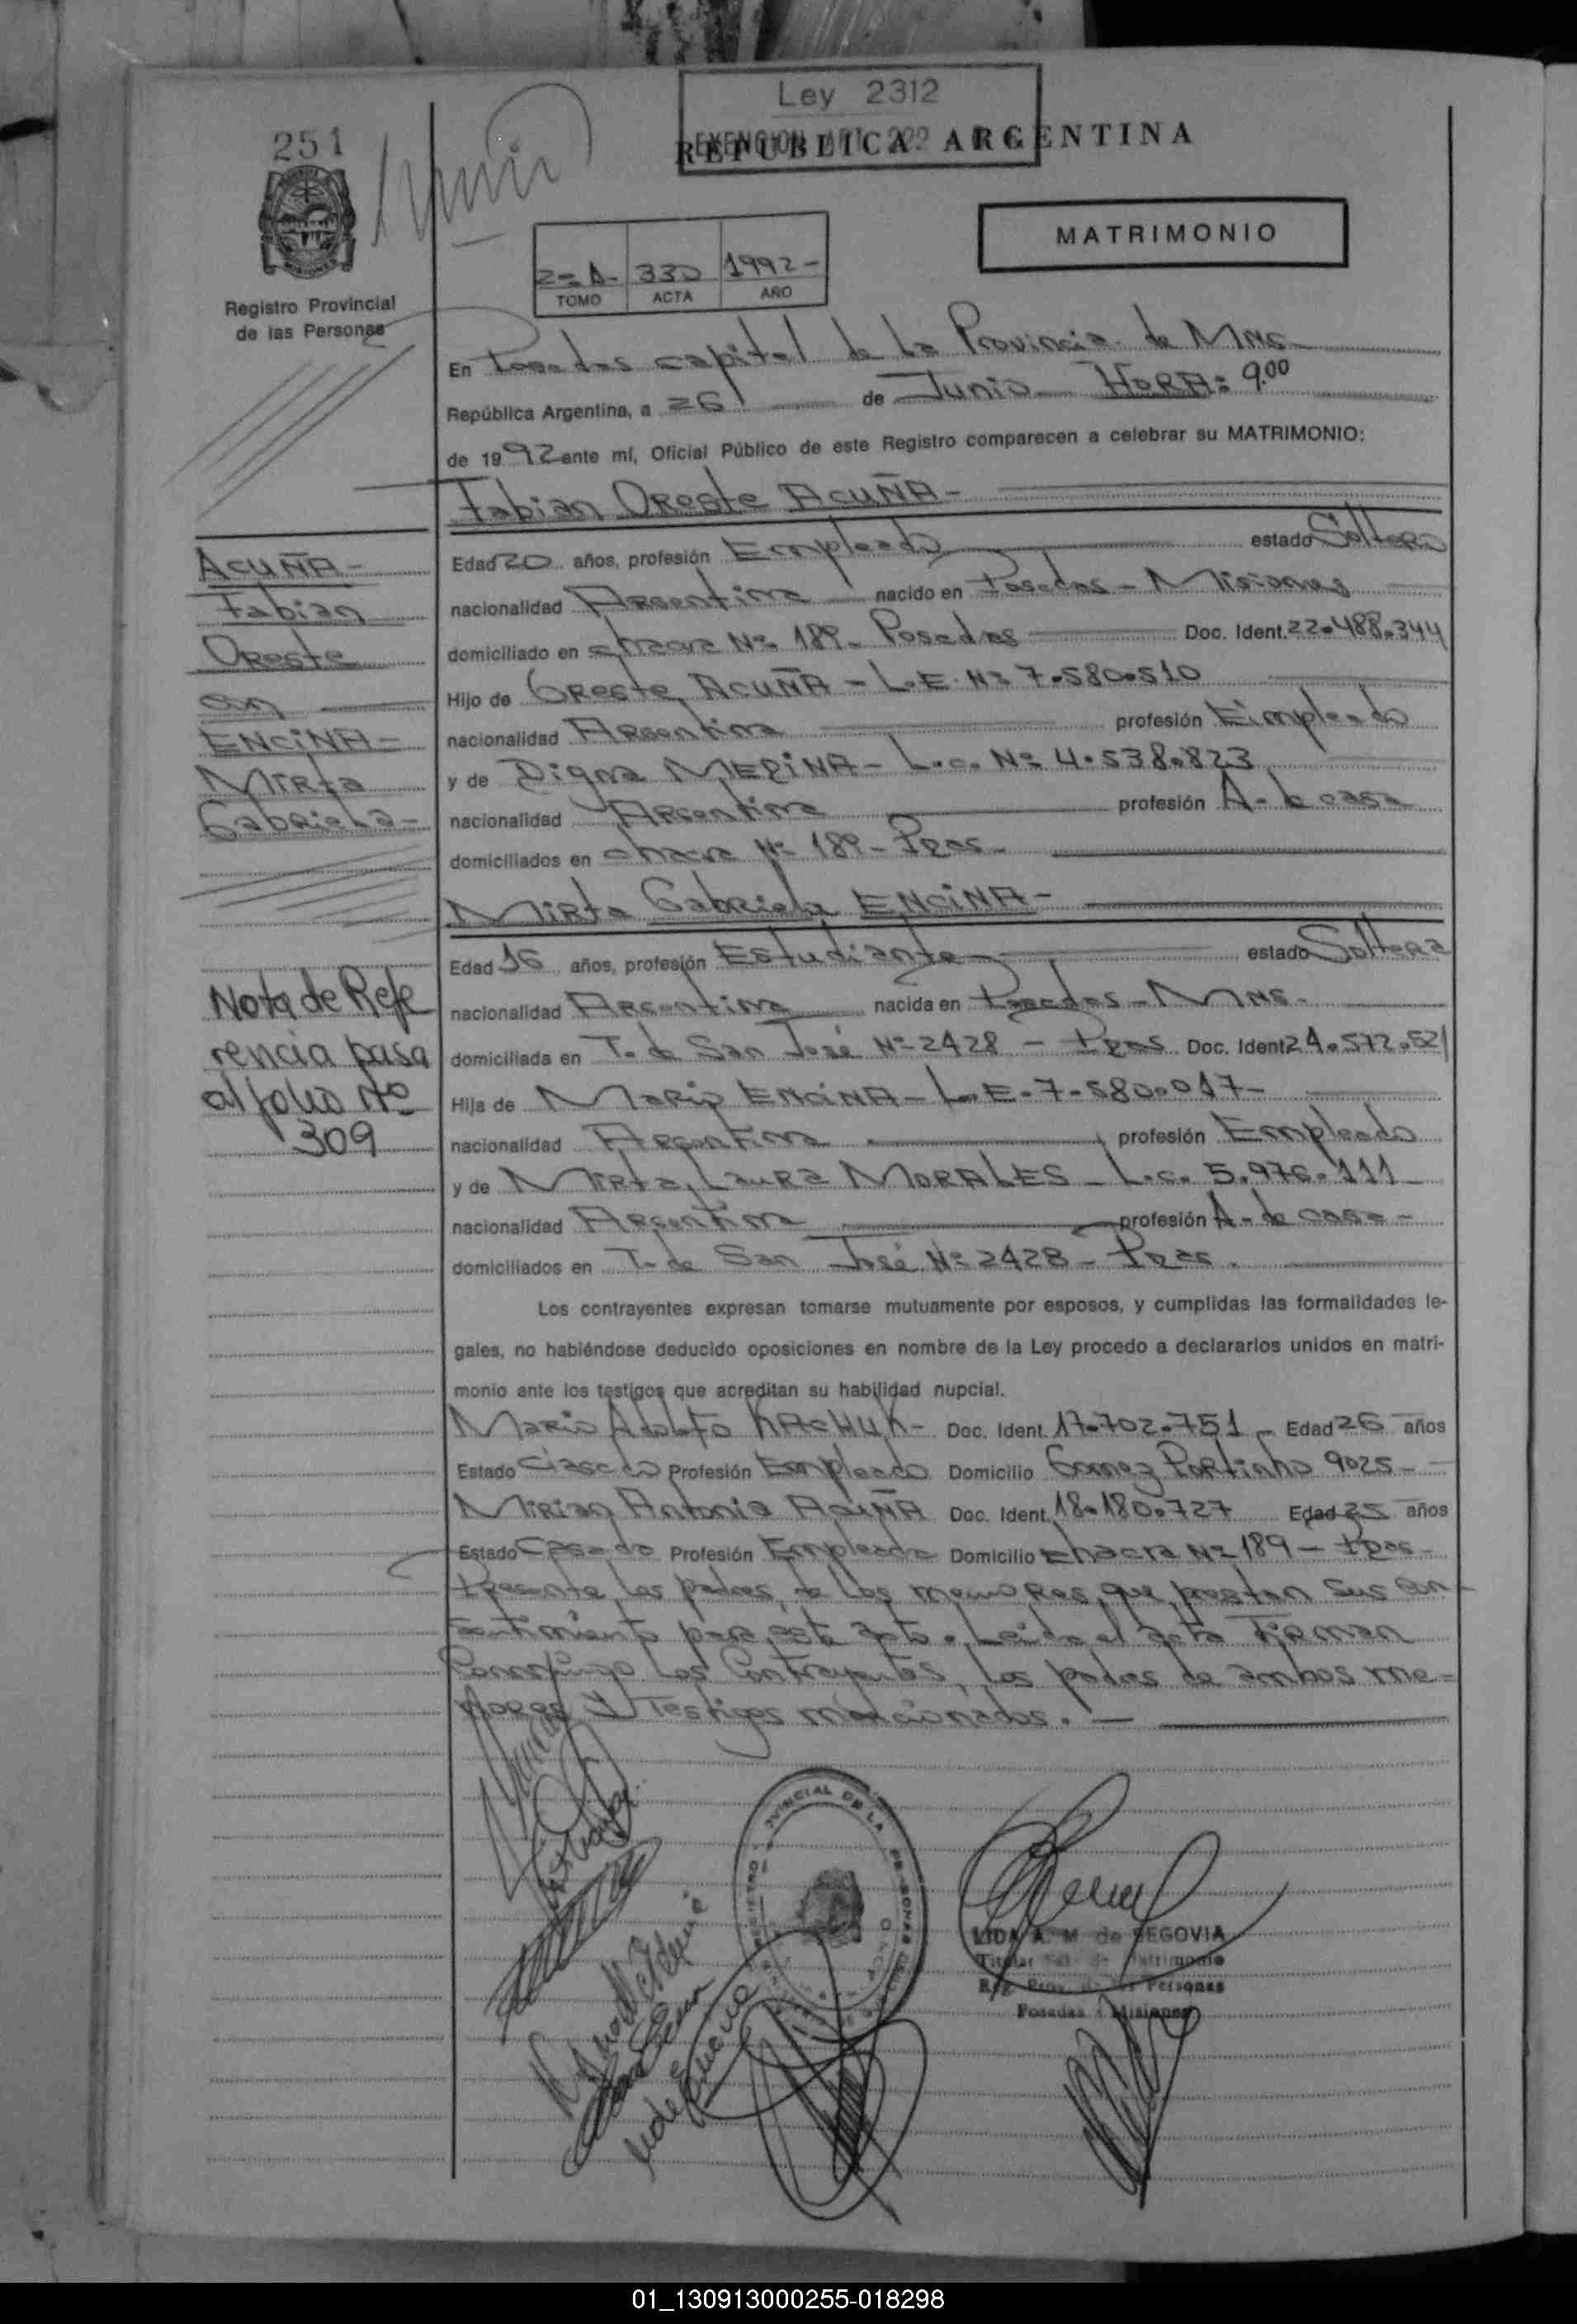 Ley 2312
REPUBLICA ARGENTINA
251
MATRIMONIO
2=A- 330 1992-
TOMO ACTA AÑO
Registro Provincial
de las Personas
En Posadas capital de la Provincia de Mnes-
República Argentina, a 26 de Junio HORA: 9.00
de 1992 ante mí, Oficial Público de este Registro comparecen a celebrar su MATRIMONIO:
Fabian Oreste ACUÑA-
Edad 20 años, profesión Empleado estado Soltero
nacionalidad Argentina nacido en Posadas - Misiones
domiciliado en chacra Nº 189- Posadas Doc. Ident. 22.488.344
Hijo de Oreste ACUÑA - L.E. Nº 7.580.510
nacionalidad Argentina profesión Empleado
y de Digna MEDINA- L.C. Nº 4.538.823
nacionalidad Argentina profesión A. de casa
domiciliados en chacra Nº 189- Pdas-
Mirta Gabriela ENCINA-
Edad 16 años, profesión Estudiante estado Soltera
nacionalidad Argentina nacida en Posadas - Mnes.
domiciliada en T. de San José Nº 2428 - Pdas. Doc. Ident 24.572.521
Hija de Mario ENCINA- L.E. 7.580.017-
nacionalidad Argentina profesión Empleado
y de Mirta Laura MORALES - L.C. 5.976.111
nacionalidad Argentina profesión A. de casa-
domiciliados en T. de San José Nº 2428 - Pdas.
ACUÑA-
Fabian
Oreste
con
ENCINA-
Mirta
Gabriela-
Nota de Refe
rencia pasa
al folio Nº
309
Los contrayentes expresan tomarse mutuamente por esposos, y cumplidas las formalidades le-
gales, no habiéndose deducido oposiciones en nombre de la Ley procedo a declararlos unidos en matri-
monio ante los testigos que acreditan su habilidad nupcial.
Mario Adolfo KACHUK- Doc. Ident. 17.702.751 Edad 26 años
Estado Casado Profesión Empleado Domicilio Gomez Portinho 9025-
Mirian Antonia ACUÑA Doc. Ident. 18.180.727 Edad 25 años
Estado Casada Profesión Empleada Domicilio chacra Nº 189 - Pdas-
Presente los padres de los menores que prestan sus con-
sentimiento para este acto. Leida el acta Firman
Conmigo Los Contrayentes, los padres de ambos me-
nores y Testigos mencionados.
LIDA A. M. de SEGOVIA
Posadas - Misiones
01_130913000255-018298